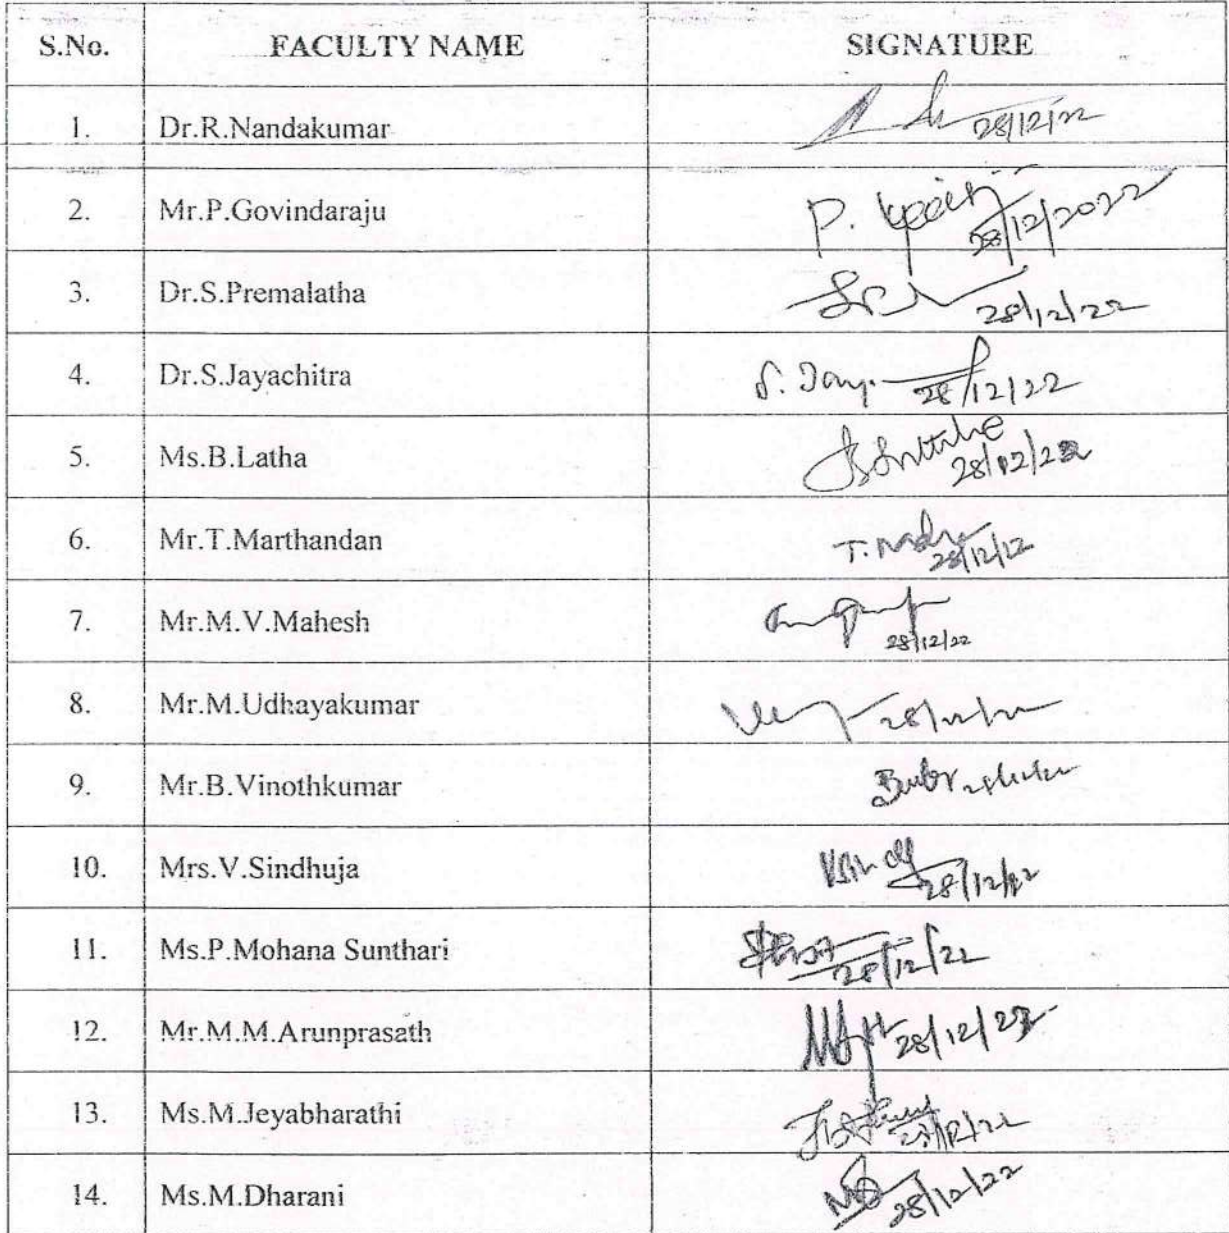 S.No. FACULTY NAME SIGNATURE
1. Dr.R.Nandakumar 28/12/22
2. Mr.P.Govindaraju P. 28/12/2022
3. Dr.S.Premalatha 28/12/22
4. Dr.S.Jayachitra S. Jay. 28/12/22
5. Ms.B.Latha 28/12/22
6. Mr.T.Marthandan T. 28/12/22
7. Mr.M.V.Mahesh 28/12/22
8. Mr.M.Udhayakumar 28/12/22
9. Mr.B.Vinothkumar
10. Mrs.V.Sindhuja 28/12/22
11. Ms.P.Mohana Sunthari 28/12/22
12. Mr.M.M.Arunprasath 28/12/22
13. Ms.M.Jeyabharathi 28/12/22
14. Ms.M.Dharani 28/12/22